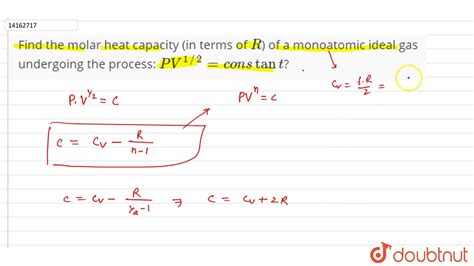 14162717
Find the molar heat capacity (in terms of R) of a monoatomic ideal gas
undergoing the process: PV^{1/2} = constant?
C_V = \frac{f.R}{2} =
P.V^{1/2} = C
PV^n = C
C = C_V - \frac{R}{n-1}
C = C_V - \frac{R}{1/2-1} ⇒ C = C_V + 2R
doubtnut